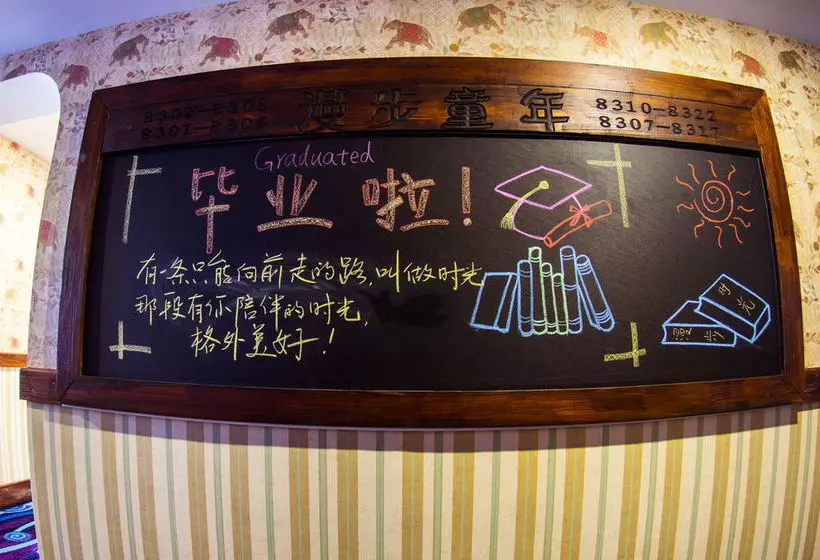 8309-8305 漫步童年 8310-8322
8301-8306 8307-8317
Graduated
毕业啦!
有一条只能向前走的路,叫做时光
那段有你陪伴的时光,
格外美好!
漫步